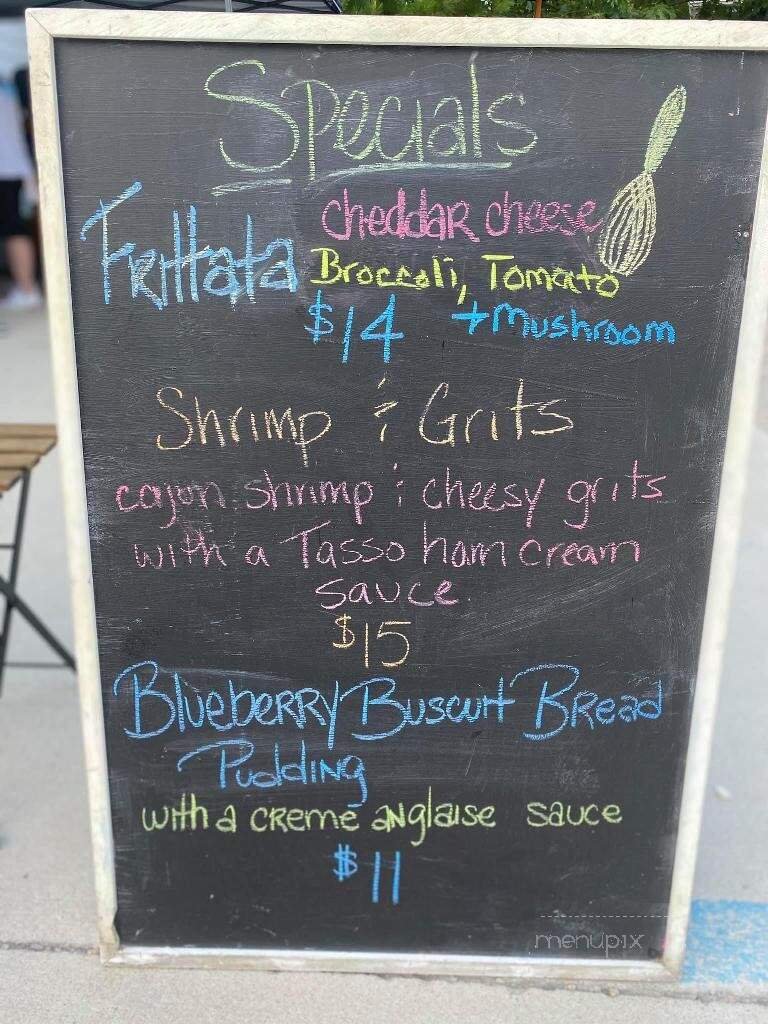 Specials
Frittata cheddar cheese
Broccoli, Tomato
$14 + Mushroom
Shrimp & Grits
cajun shrimp & cheesy grits
with a Tasso ham cream
sauce
$15
Blueberry Buscuit Bread
Pudding
with a creme anglaise sauce
$11
menupix